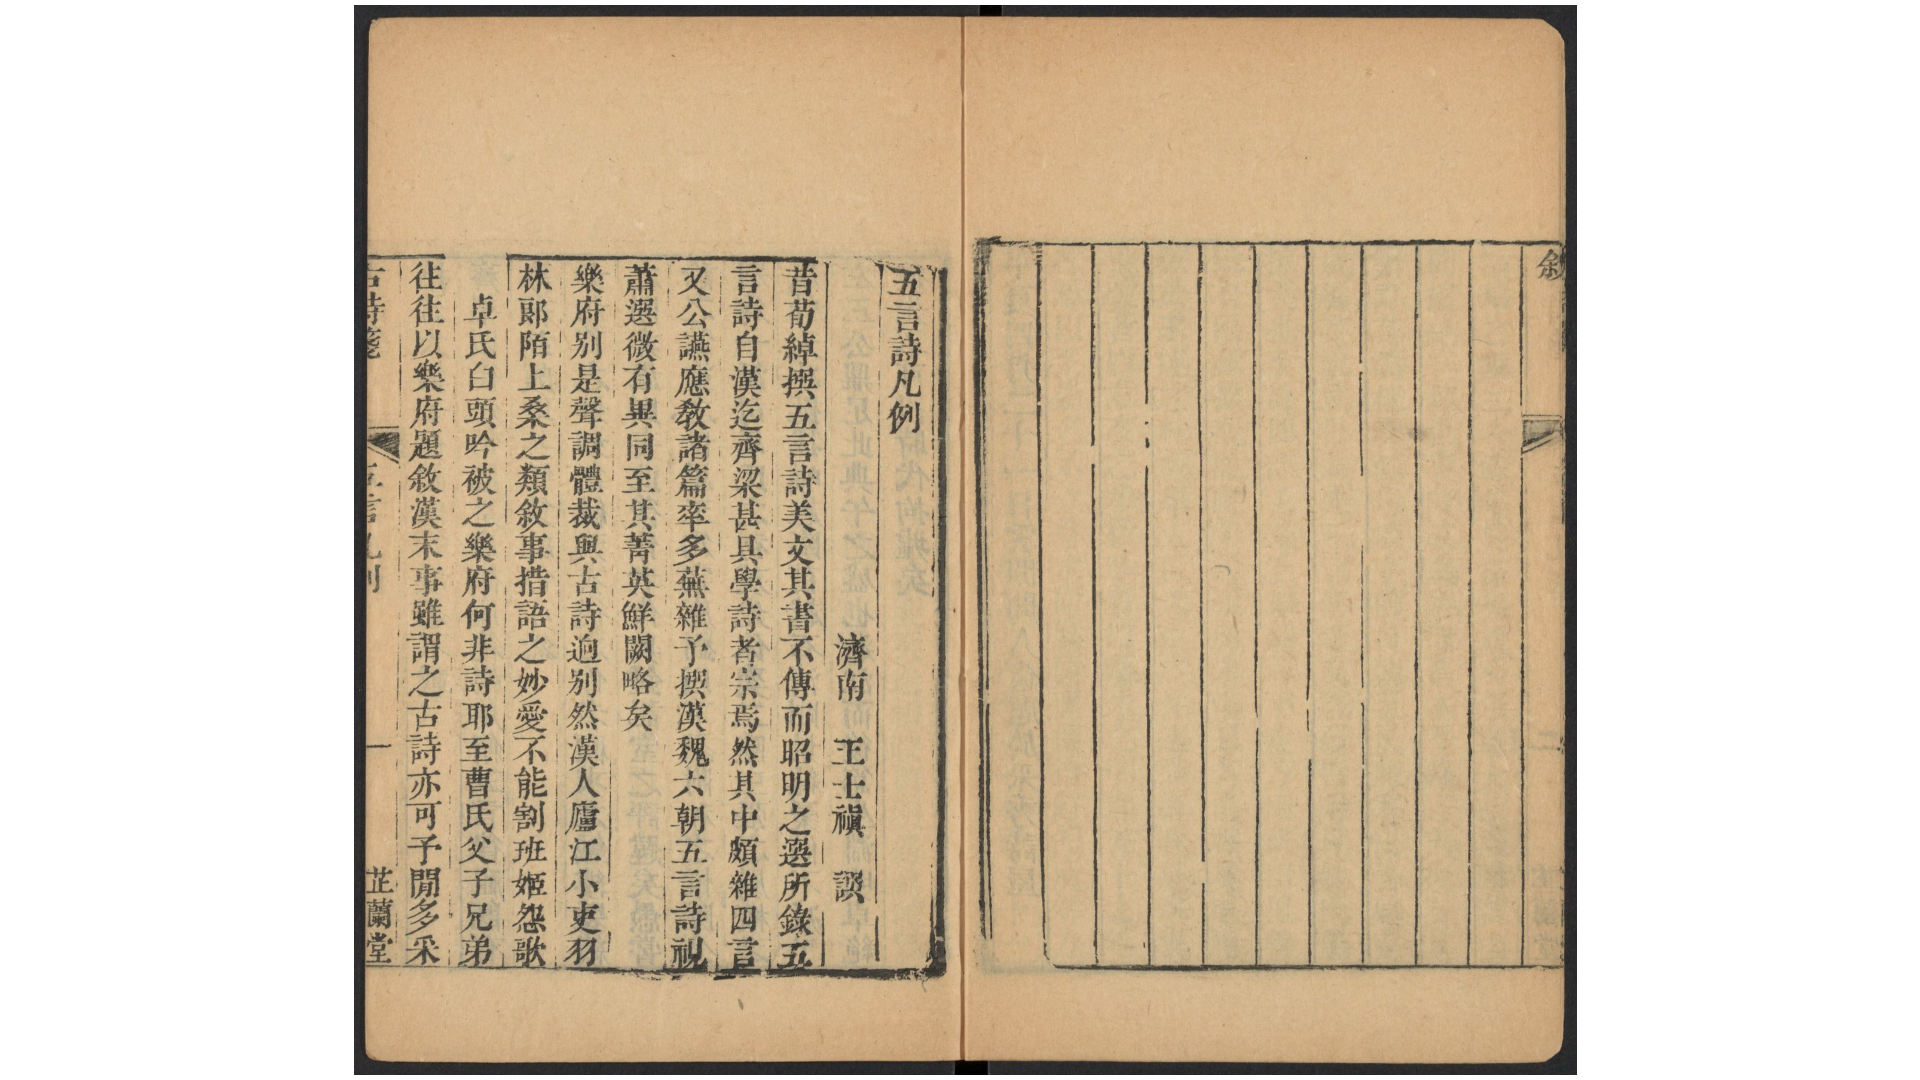 敘
五言詩凡例
濟南 王士禛 談
昔荀綽撰五言詩美文其書不傳而昭明之選所錄五
言詩自漢迄齊梁甚具學詩者宗焉然其中頗雜四言
又公讌應敎諸篇率多蕪雜予撰漢魏六朝五言詩視
蕭選微有異同至其菁英鮮闕略矣
樂府别是聲調體裁與古詩逈别然漢人廬江小吏羽
林郎陌上桑之類敘事措語之妙愛不能割班姬怨歌
卓氏白頭吟被之樂府何非詩耶至曹氏父子兄弟
往往以樂府題敘漢末事雖謂之古詩亦可予閒多采
古詩箋 五言凡例 一 芷蘭堂